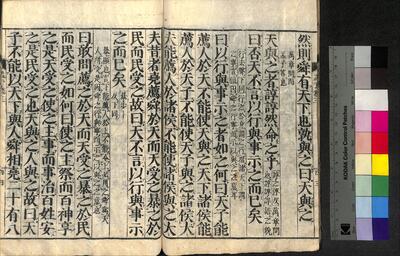 然則舜有天下也孰與之曰天與之
萬章問而孟子答也
天與之者諄諄然命之乎
諄之淳反萬章問也諄諄詳語之貌
曰否天不言以行與事示之而已矣
曰以行與事示之者如之何曰天子能
薦人於天不能使天與之天下諸侯能
薦人於天子不能使天子與之諸侯大
夫能薦人於諸侯不能使諸侯與之大
夫昔者堯薦舜於天而天受之暴之於
民而民受之故曰天不言以行與事示
之而已矣
曰敢問薦之於天而天受之暴之於民
而民受之如何曰使之主祭而百神享
之是天受之使之主事而事治百姓安
之是民受之也天與之人與之故曰天
子不能以天下與人舜相堯二十有八
KODAK COLOR CONTROL PATCHES